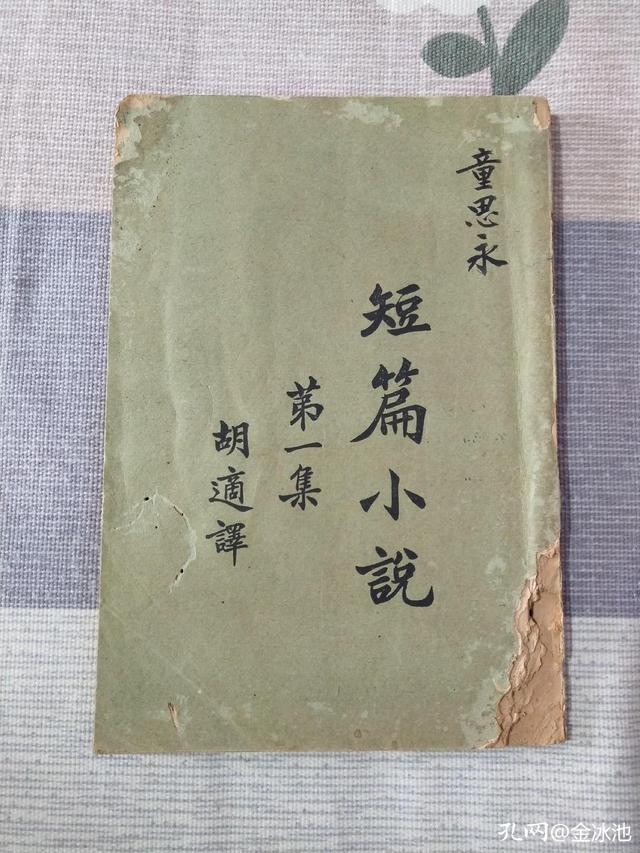 童思永
短篇小說
第一集
胡適譯
孔网@金冰池